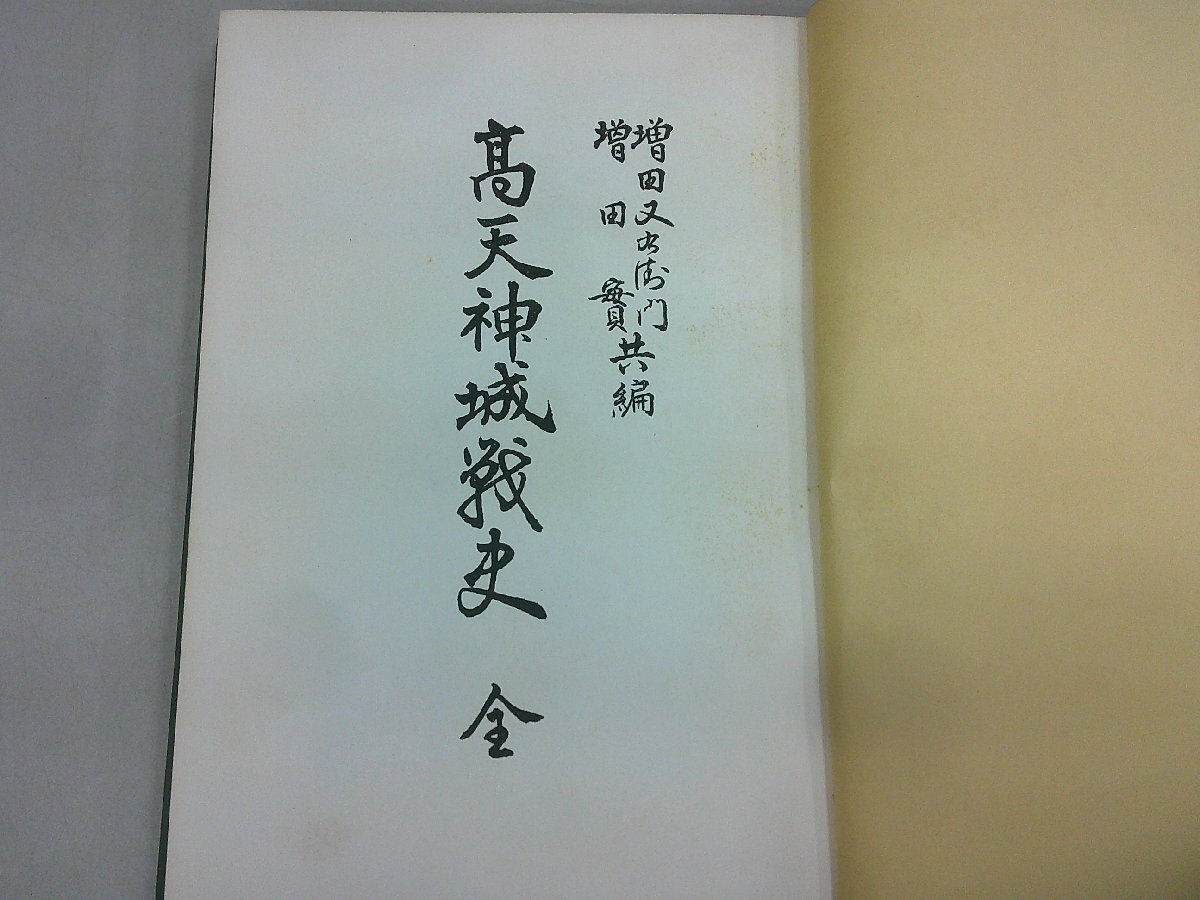 増田又右衛門
増田實共編
髙天神城戦史 全